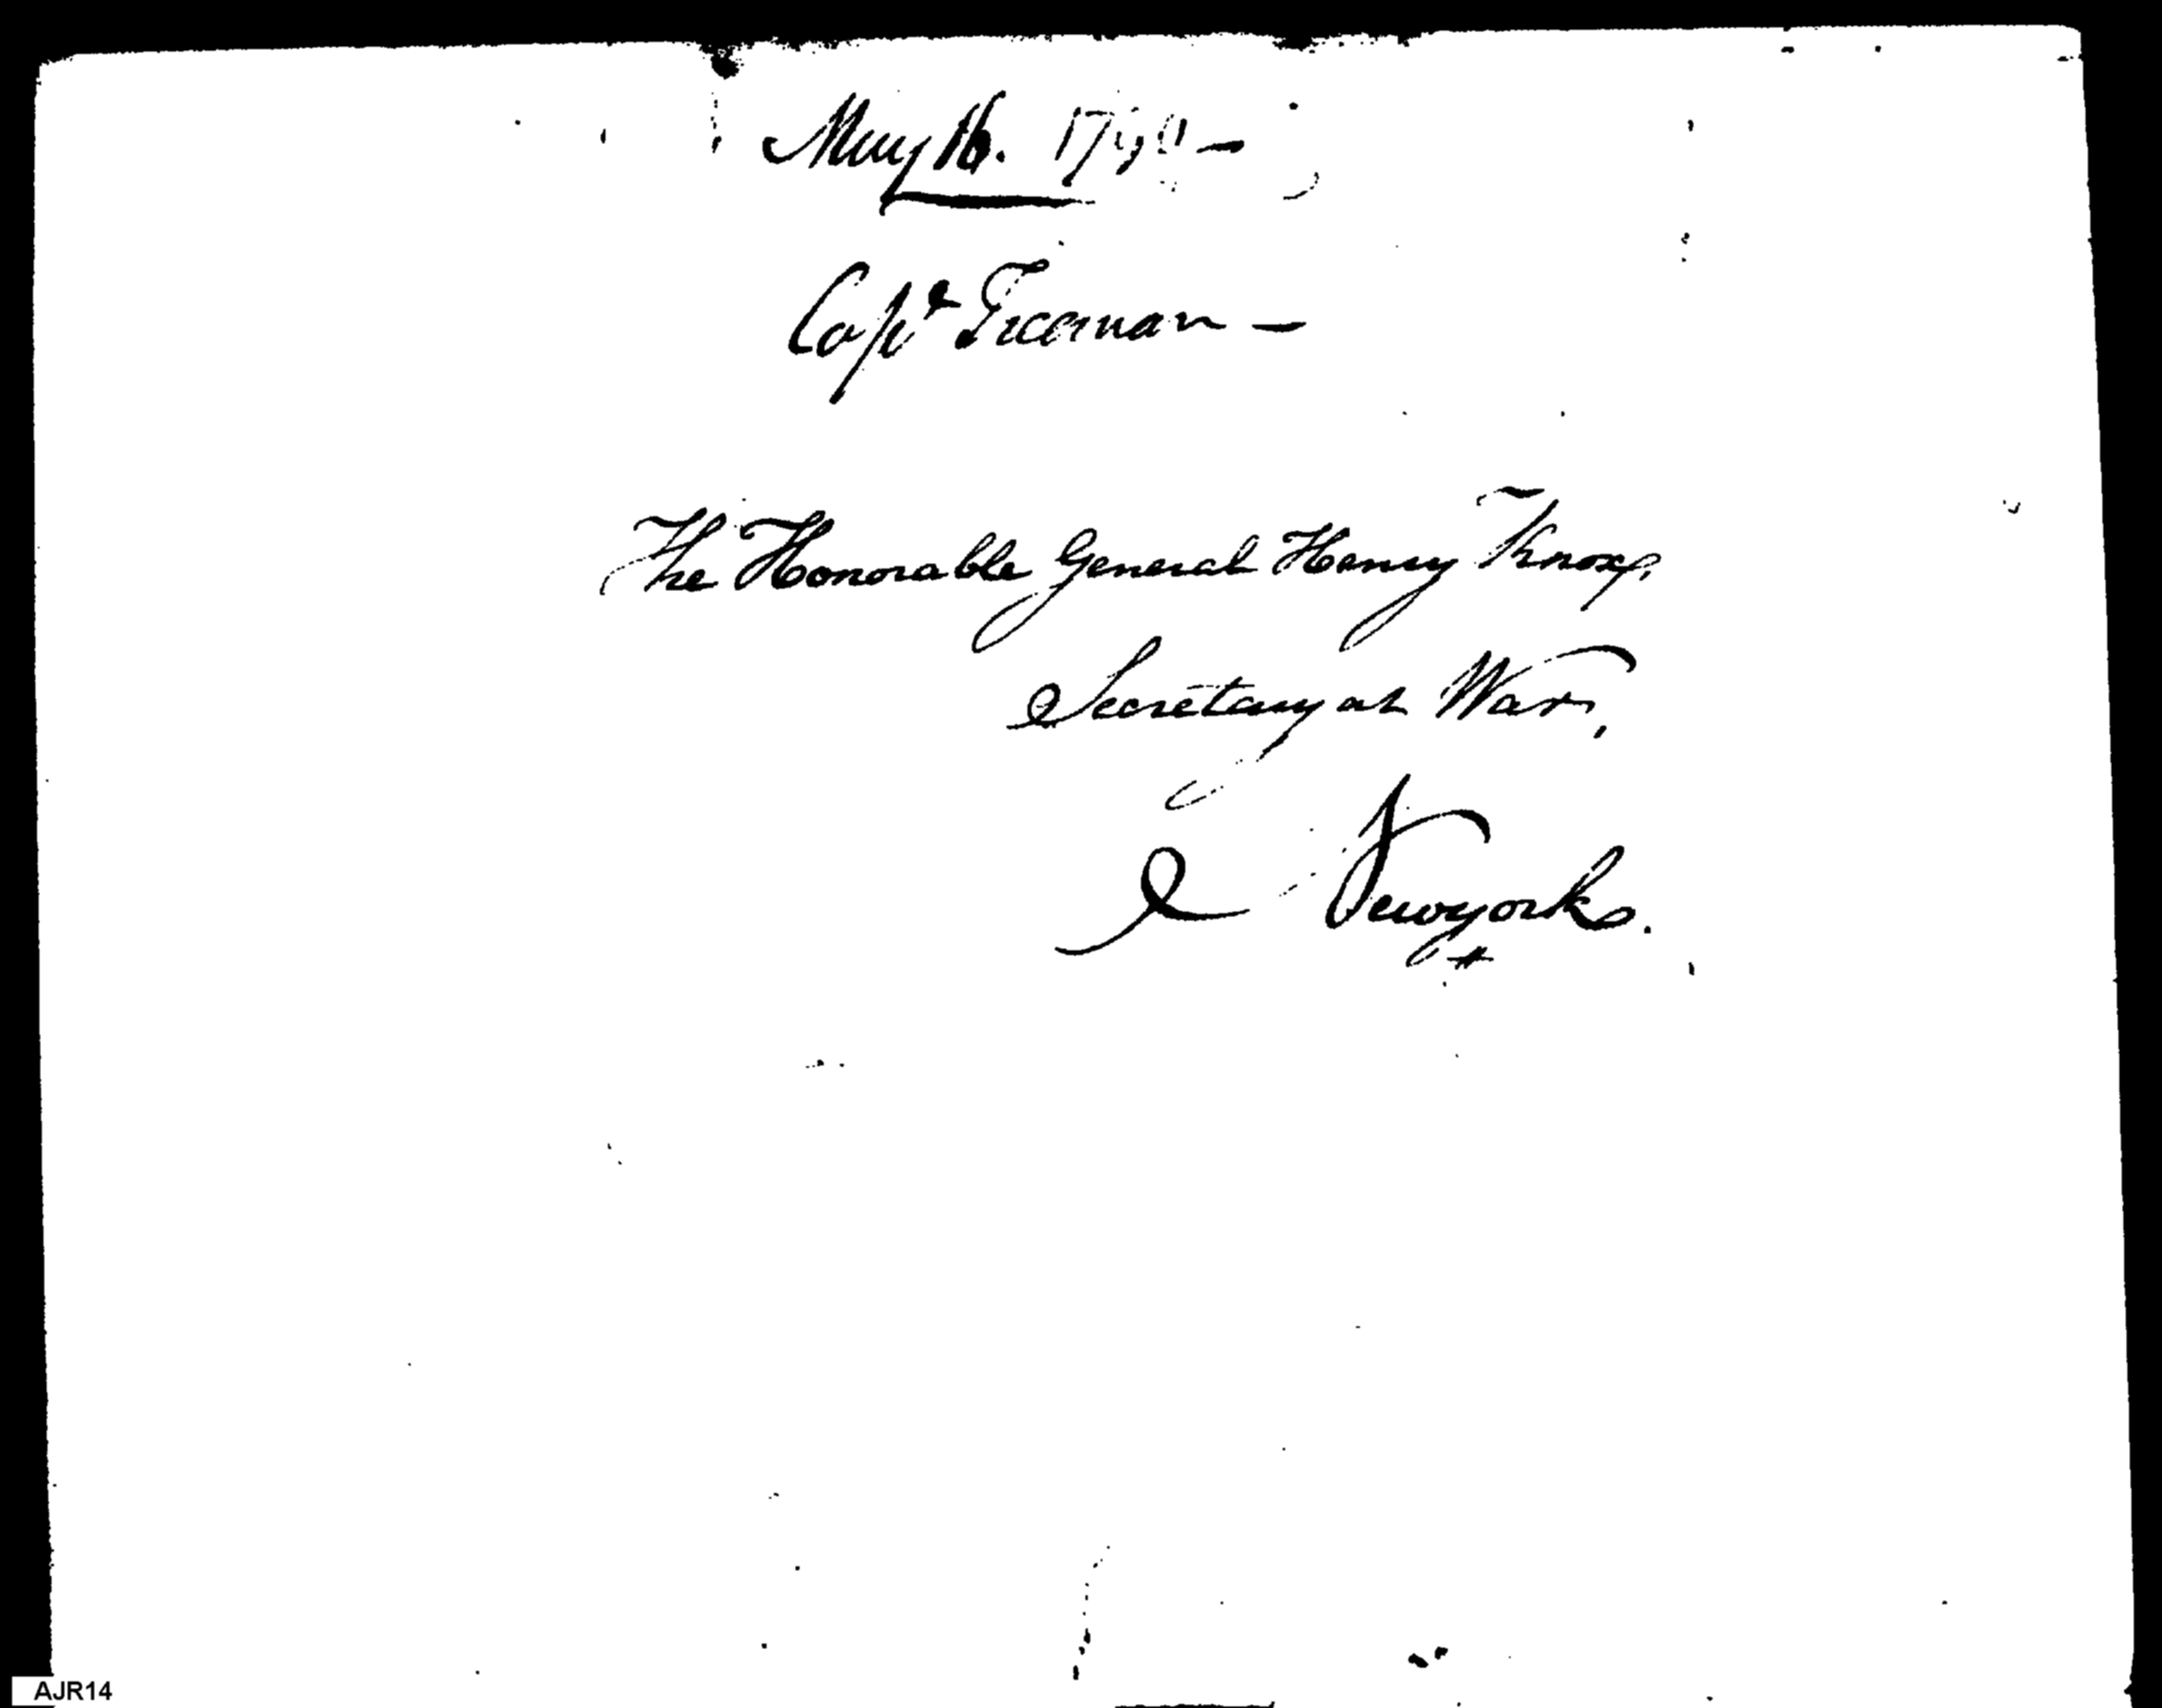 May 16. 1790 —
Capt Freeman —
The Honorable General Henry Knox,
Secretary at War,
Newyork.
AJR14